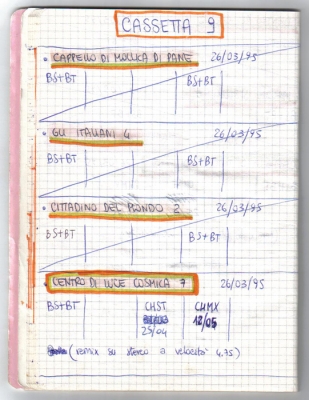 CASSETTA 9
CAPPELLO DI MOLLICA DI PANE 26/03/95
BS+BT BS+BT
GLI ITALIANI 4 26/03/95
BS+BT BS+BT
CITTADINO DEL MONDO 2 26/03/95
BS+BT BS+BT
CENTRO DI LUCE COSMICA 7 26/03/95
BS+BT CHST CHMX
25/04 12/05
(remix su stereo a velocità 4.75)